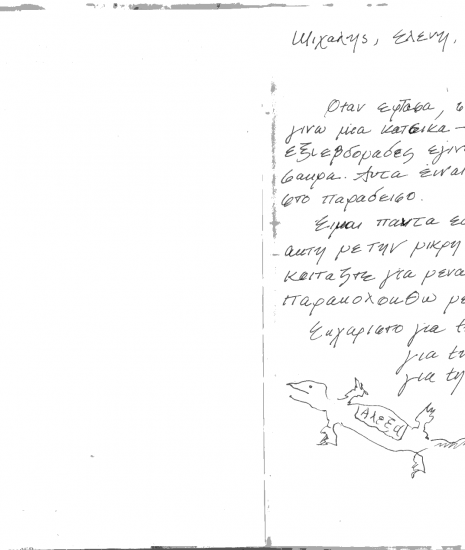 Μιχαλης, Ελενη,
Οταν εφτασα,
γινω μια κατσικα –
εξι εβδομαδες εγιν
σαυρα. Αυτα ειναι
στο παραδεισο.
Ειμαι παντα εδ
ακτη με την μικρη
Κοιταξτε για μενα
Παρακολουθω με
Ευχαριστο για τ
για τη
για τη
ΑΛΕΞΑ